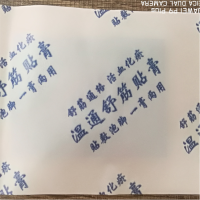 HUAWEI P9 PLUS
LEICA DUAL CAMERA
化瘀
两用
舒筋通络 活血化瘀
温通舒筋贴膏
贴敷泡脚一膏两用
舒筋
温通
贴敷
血化瘀
贴膏
膏两用